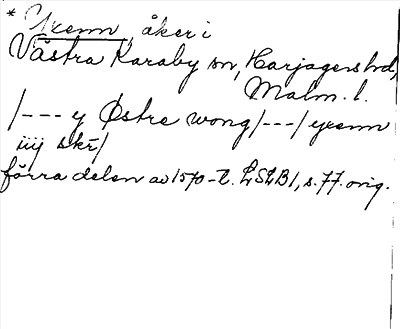 * Yrenn, åker i
Västra Karaby sn, Harjagers hd,
Malm. l.
/--- y Østre wong /---/ yrenn
iiij skr/
förra delen av 1570-t. LSLB1, s. 77. orig.